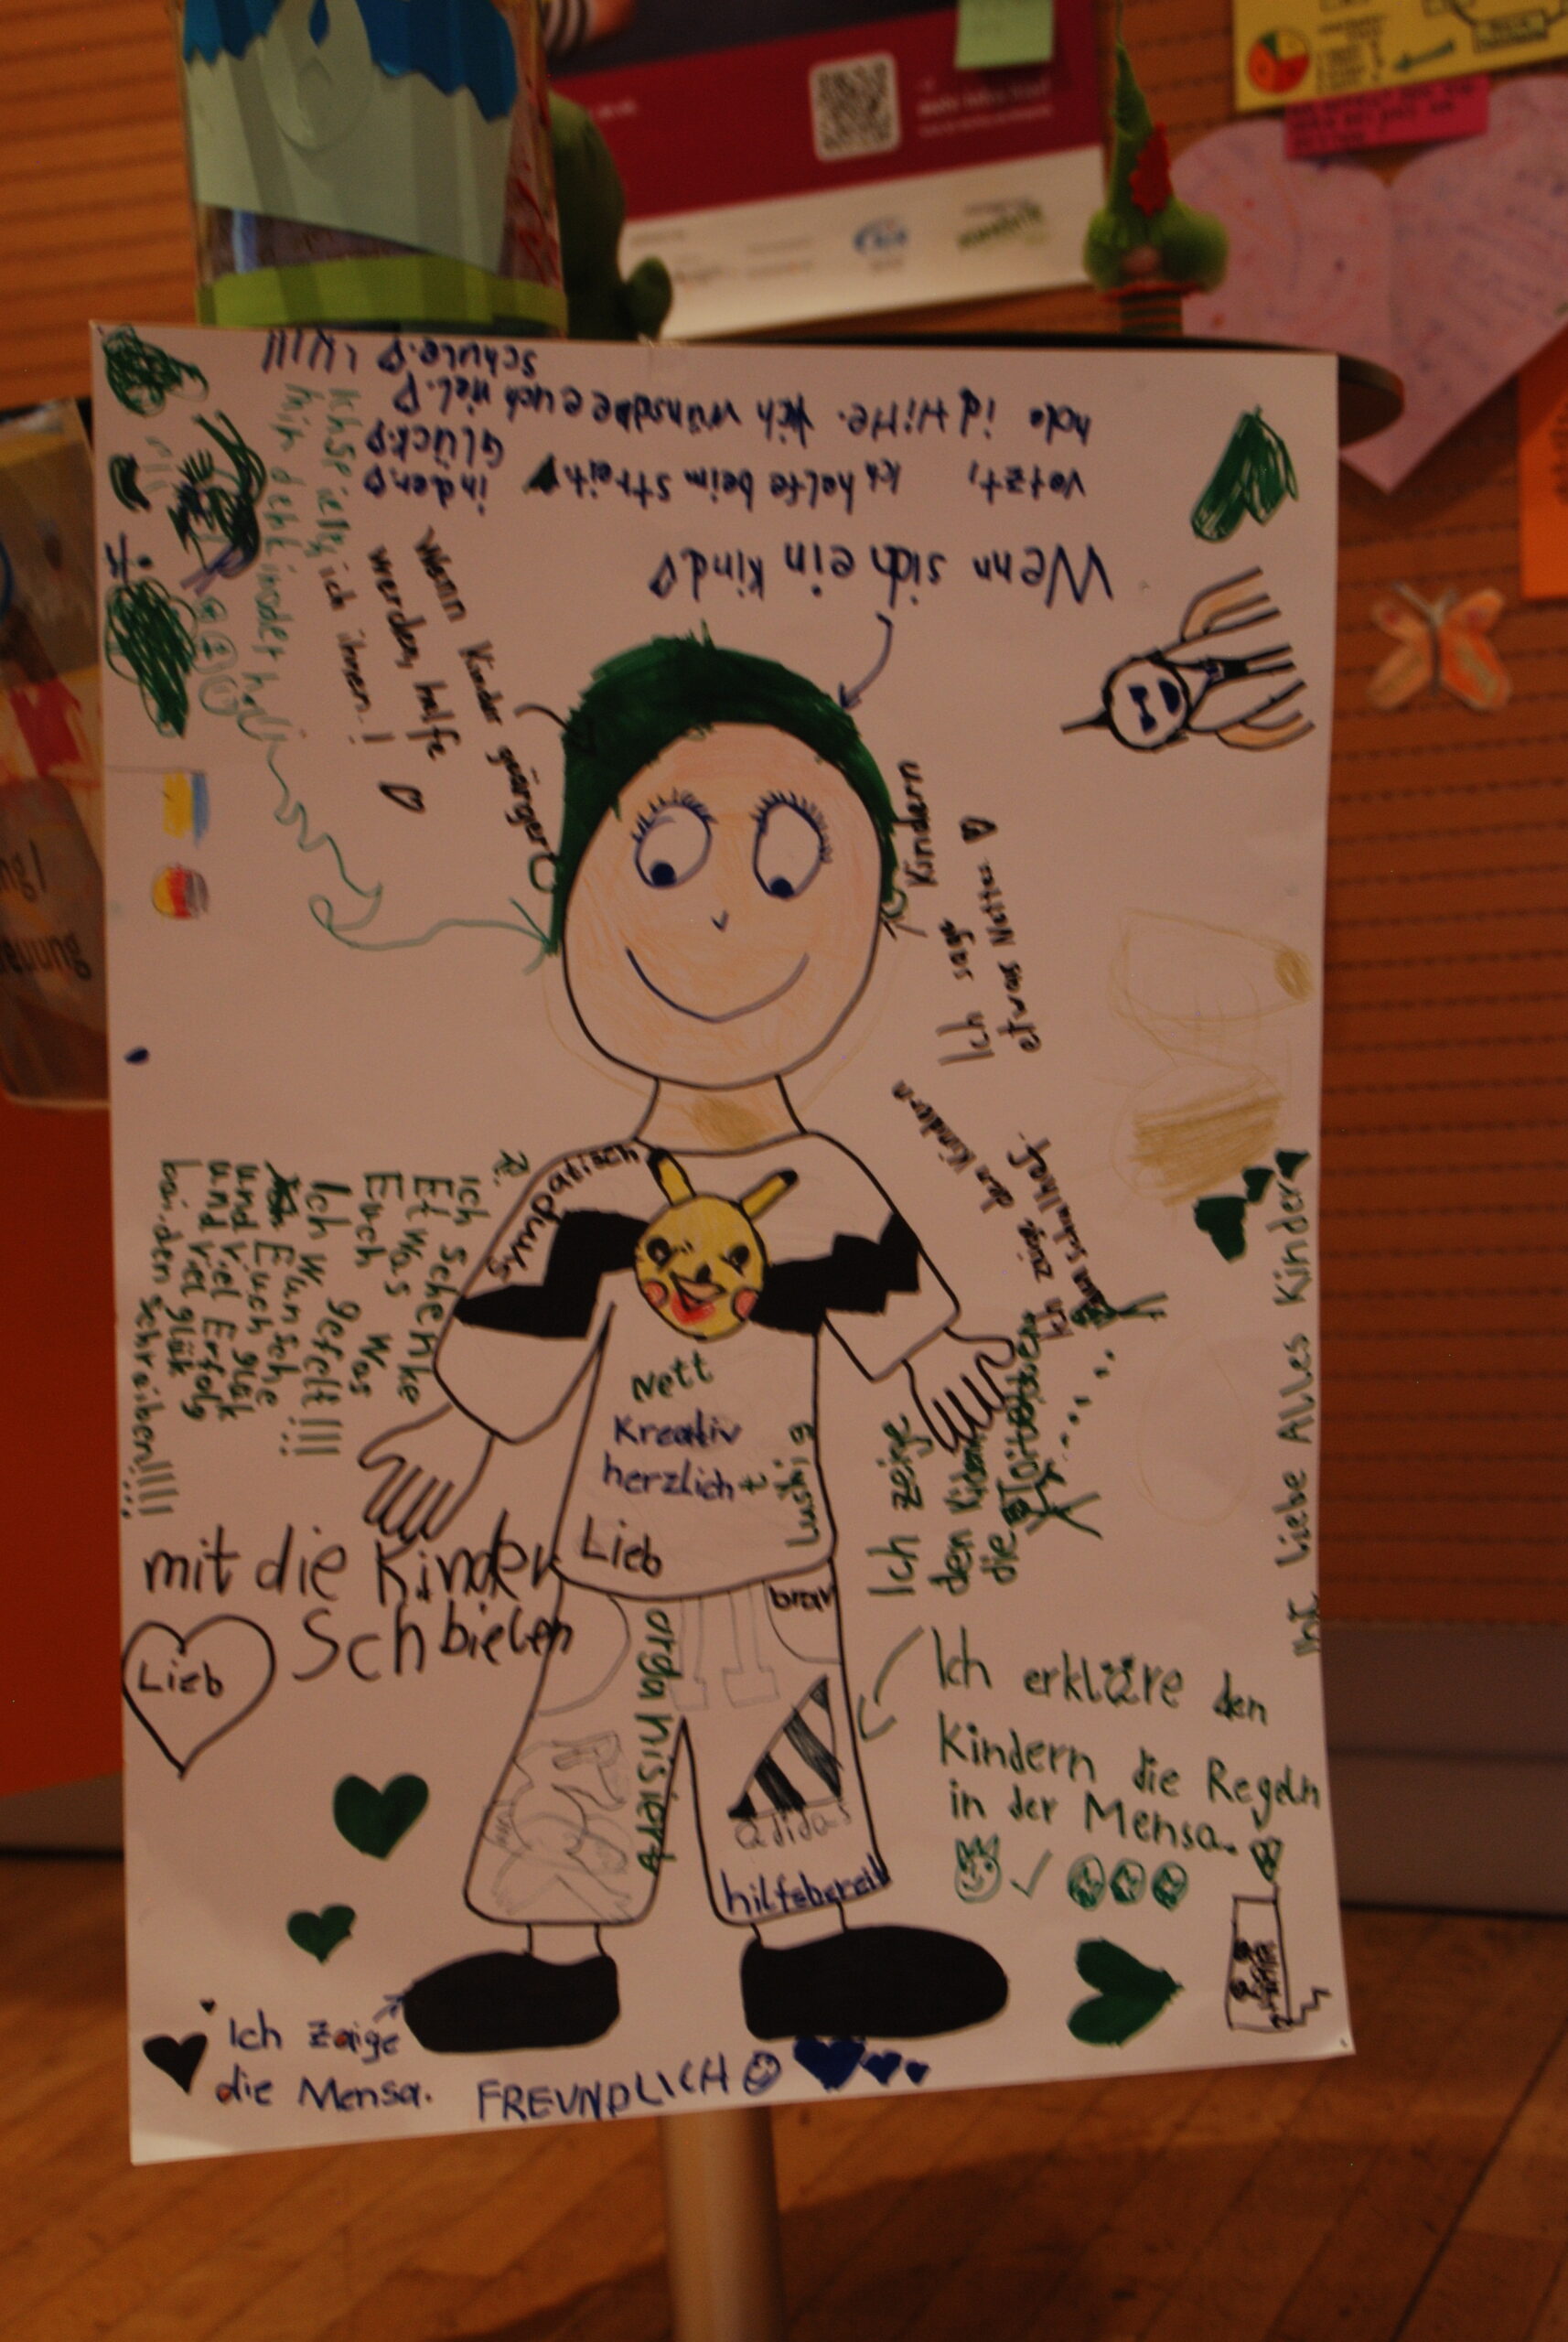 Wenn sich ein kind
vetzt, ich helfe beim streit
hole id Hilfe. Ich wünsche euch viel
Glück
inder
schule.
Wenn Kinder geärgert
werden, helfe
ich ihnen!
Ich sage
Kindern
etwas Nettes.
Ich zeige den Kindern
Ich schenke
Etwas
Euch was
Ich gefelt!!!
Eunsche
Euch glük
und viel Erfolg
und viel glük
bai den schraiben!!!!
Sympatisch
Nett
Kreativ
herzlich
lustig
Lieb
brav
organisiert
adidas
hilfsbereit
mit die Kinder
Schbielen
Lieb
Ich zeige
den Kidern
die
Ich erkläre den
Kindern die Regeln
in der Mensa.
Liebe Alles Kinder
Ich zeige
die Mensa.
FREUNDLICH